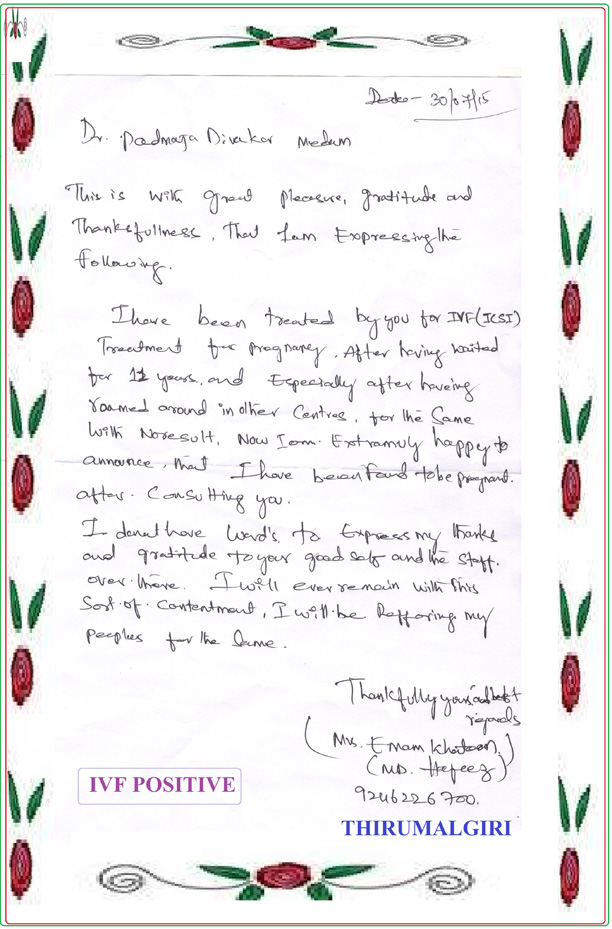 Date - 30/07/15
Dr. Padmaja Divakar Medam
This is with great pleasure, gratitude and
Thanksfullness, That Iam Expressing the
following.
I have been treated by you for IVF (ICSI)
Treatment for pregnancy. After having waited
for 11 years, and Especially after haveing
roamed around in other Centres, for the Same
With No result. Now Iam. Extramuly happy to
announce, that I have been found to be pregnant.
after. Consulting you.
I donot have Word's to Express my thanks
and gratitude to your good self and the Staff.
over there. I will ever remain with this
Sort of Contentment, I will be Reffaring my
peoples for the Same.
Thankfully yours and best
regards
(Mrs. Emam Khatoon)
(MD. Hafeez)
9246226700.
IVF POSITIVE
THIRUMALGIRI